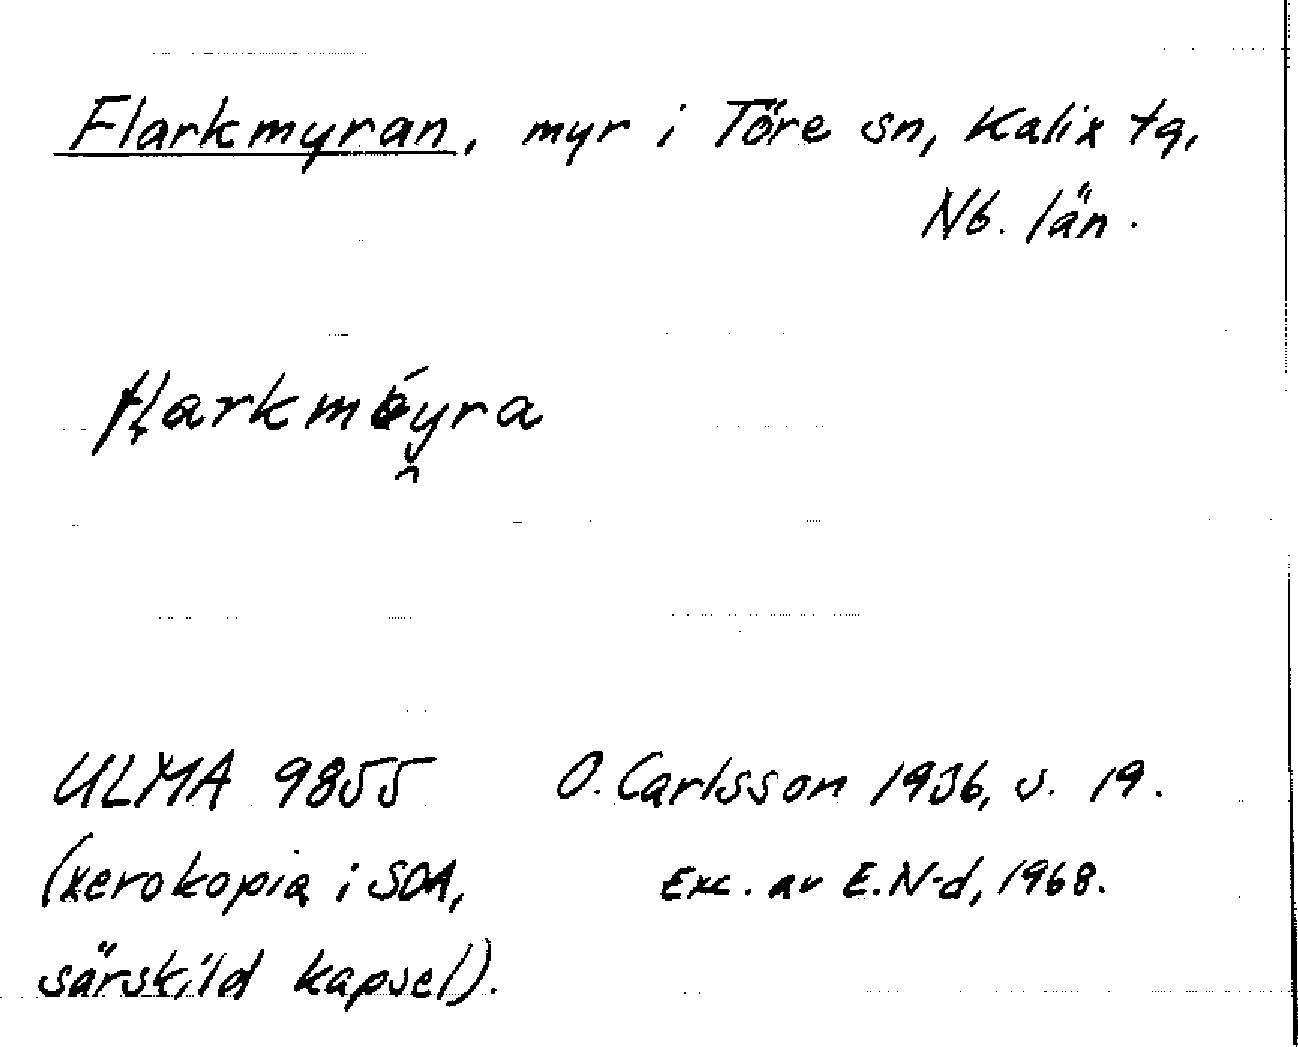 Flarkmyran, myr i Töre sn, Kalix tg,
Nb. län.
O. Carlsson 1936, s. 19.
ULMA 9855
(xerokopia i SOA,
särskild kapsel).
Exc. av E.N-d, 1968.